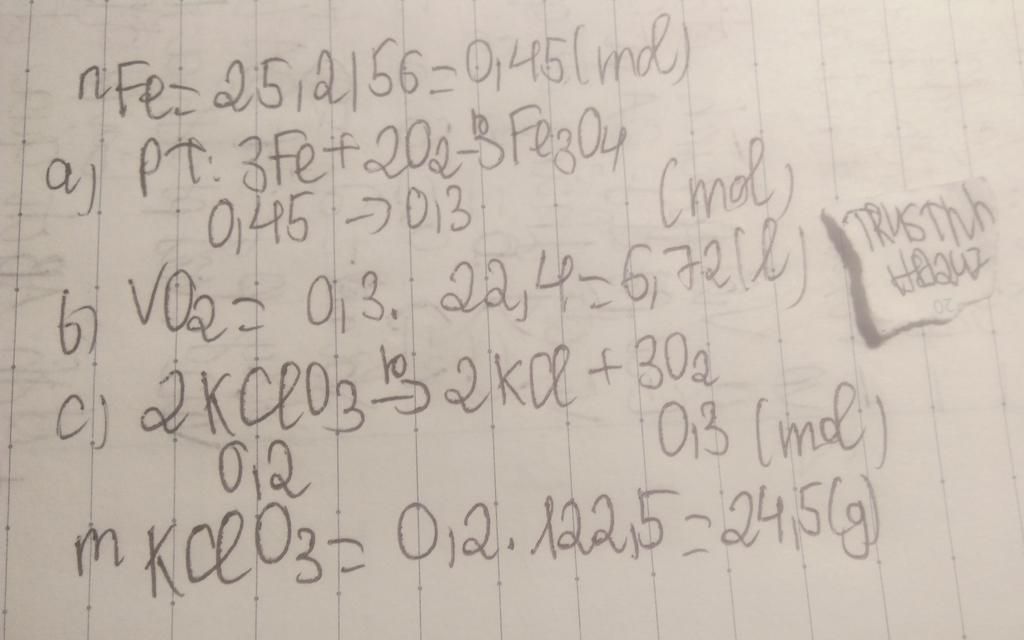 nFe = 25,2/56 = 0,45 (mol)
a) PT: 3Fe + 2O2 -to-> Fe3O4
0,45 -> 0,3 (mol)
b) VO2 = 0,3. 22,4 = 6,72 (l)
c) 2KClO3 to-> 2KCl + 3O2
0,2 0,3 (mol)
mKClO3 = 0,2. 122,5 = 24,5 (g)